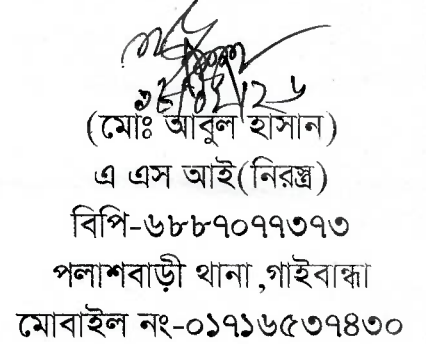 (মোঃ আবুল হাসান)
এ এস আই(নিরস্ত্র)
বিপি-৬৮৮৭০৭৭৩৭৩
পলাশবাড়ী থানা ,গাইবান্ধা
মোবাইল নং-০১৭১৬৫৩৭৪৩০